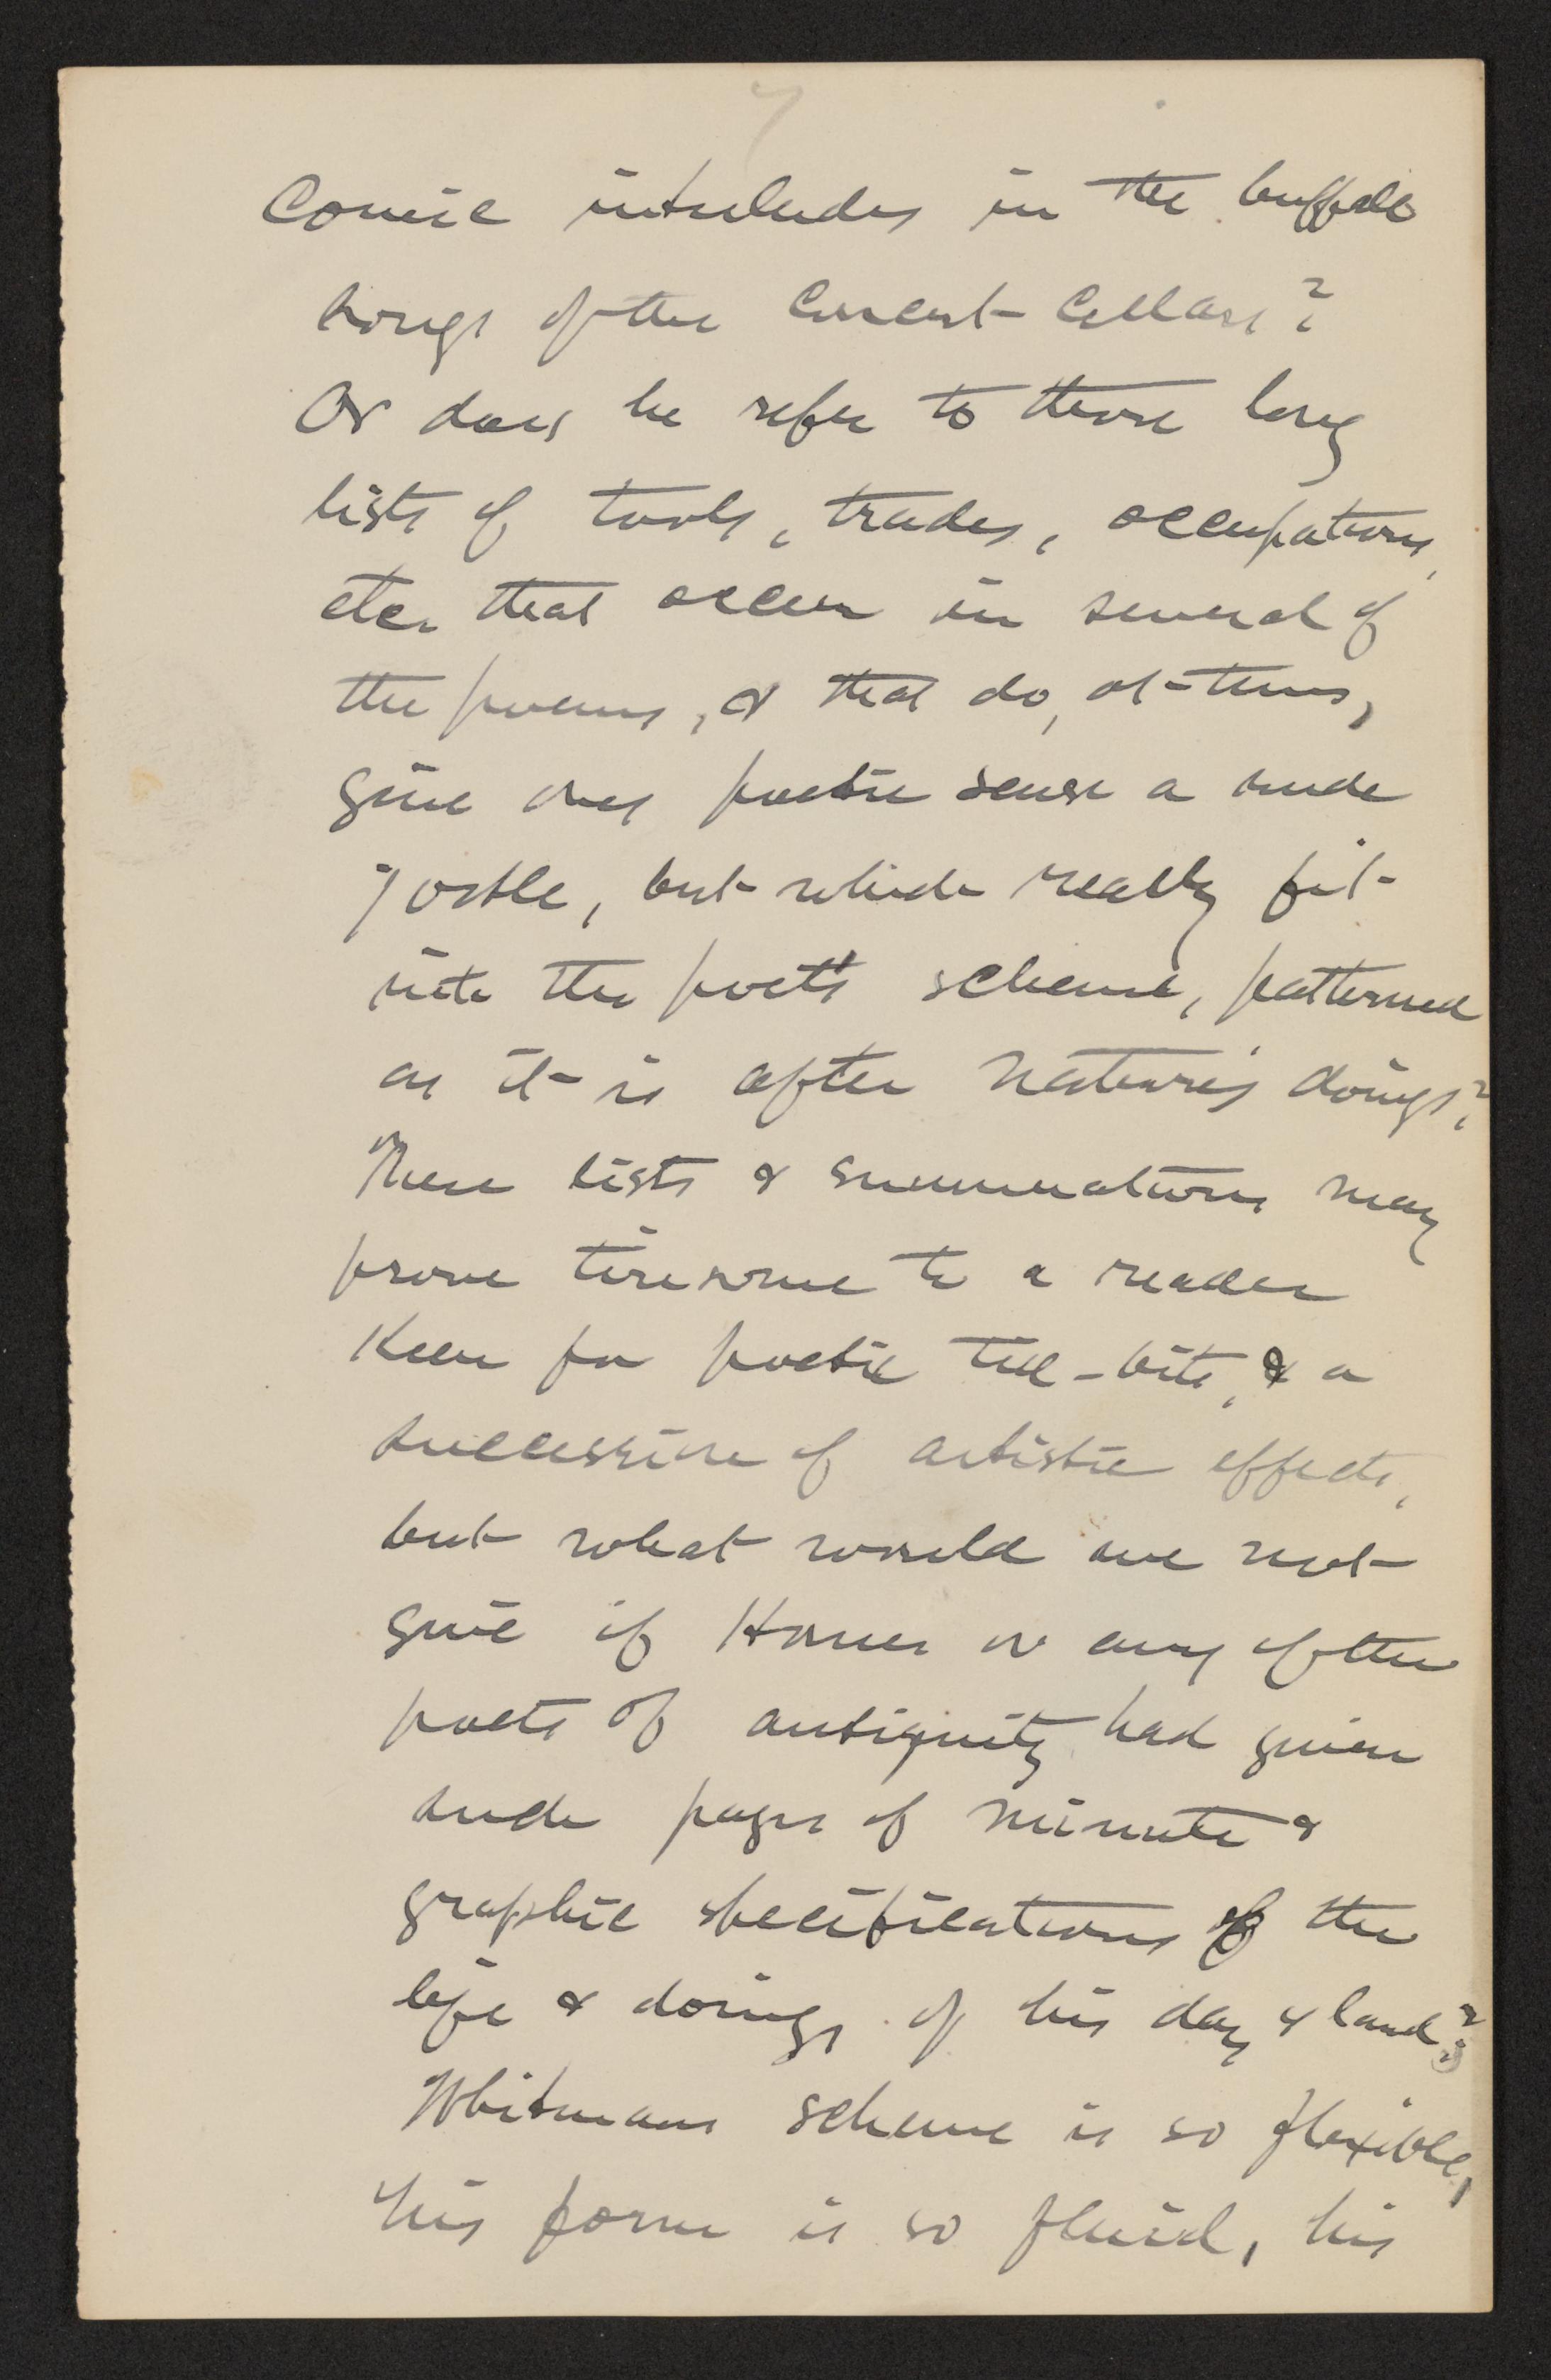 7
Comic interludes in the buffalo
songs of the Concert Cellars?
Or does he refer to those long
lists of tools, trades, occupations,
etc. that occur in several of
the poems, & that do, at times,
give ones poetic sense a rude
jostle, but which really fit
into the poet's scheme, patterned
as it is after Nature's doings?
These lists & enumerations may
prove tiresome to a reader
keen for poetic tid-bits, & a
succession of artistic effects,
but what would we not
give if Homer or any of the
poets of antiquity had given
such pages of minute &
graphic specifications of the
life & doings of his day & land?
Whitmans scheme is so flexible,
his form is so fluid, his